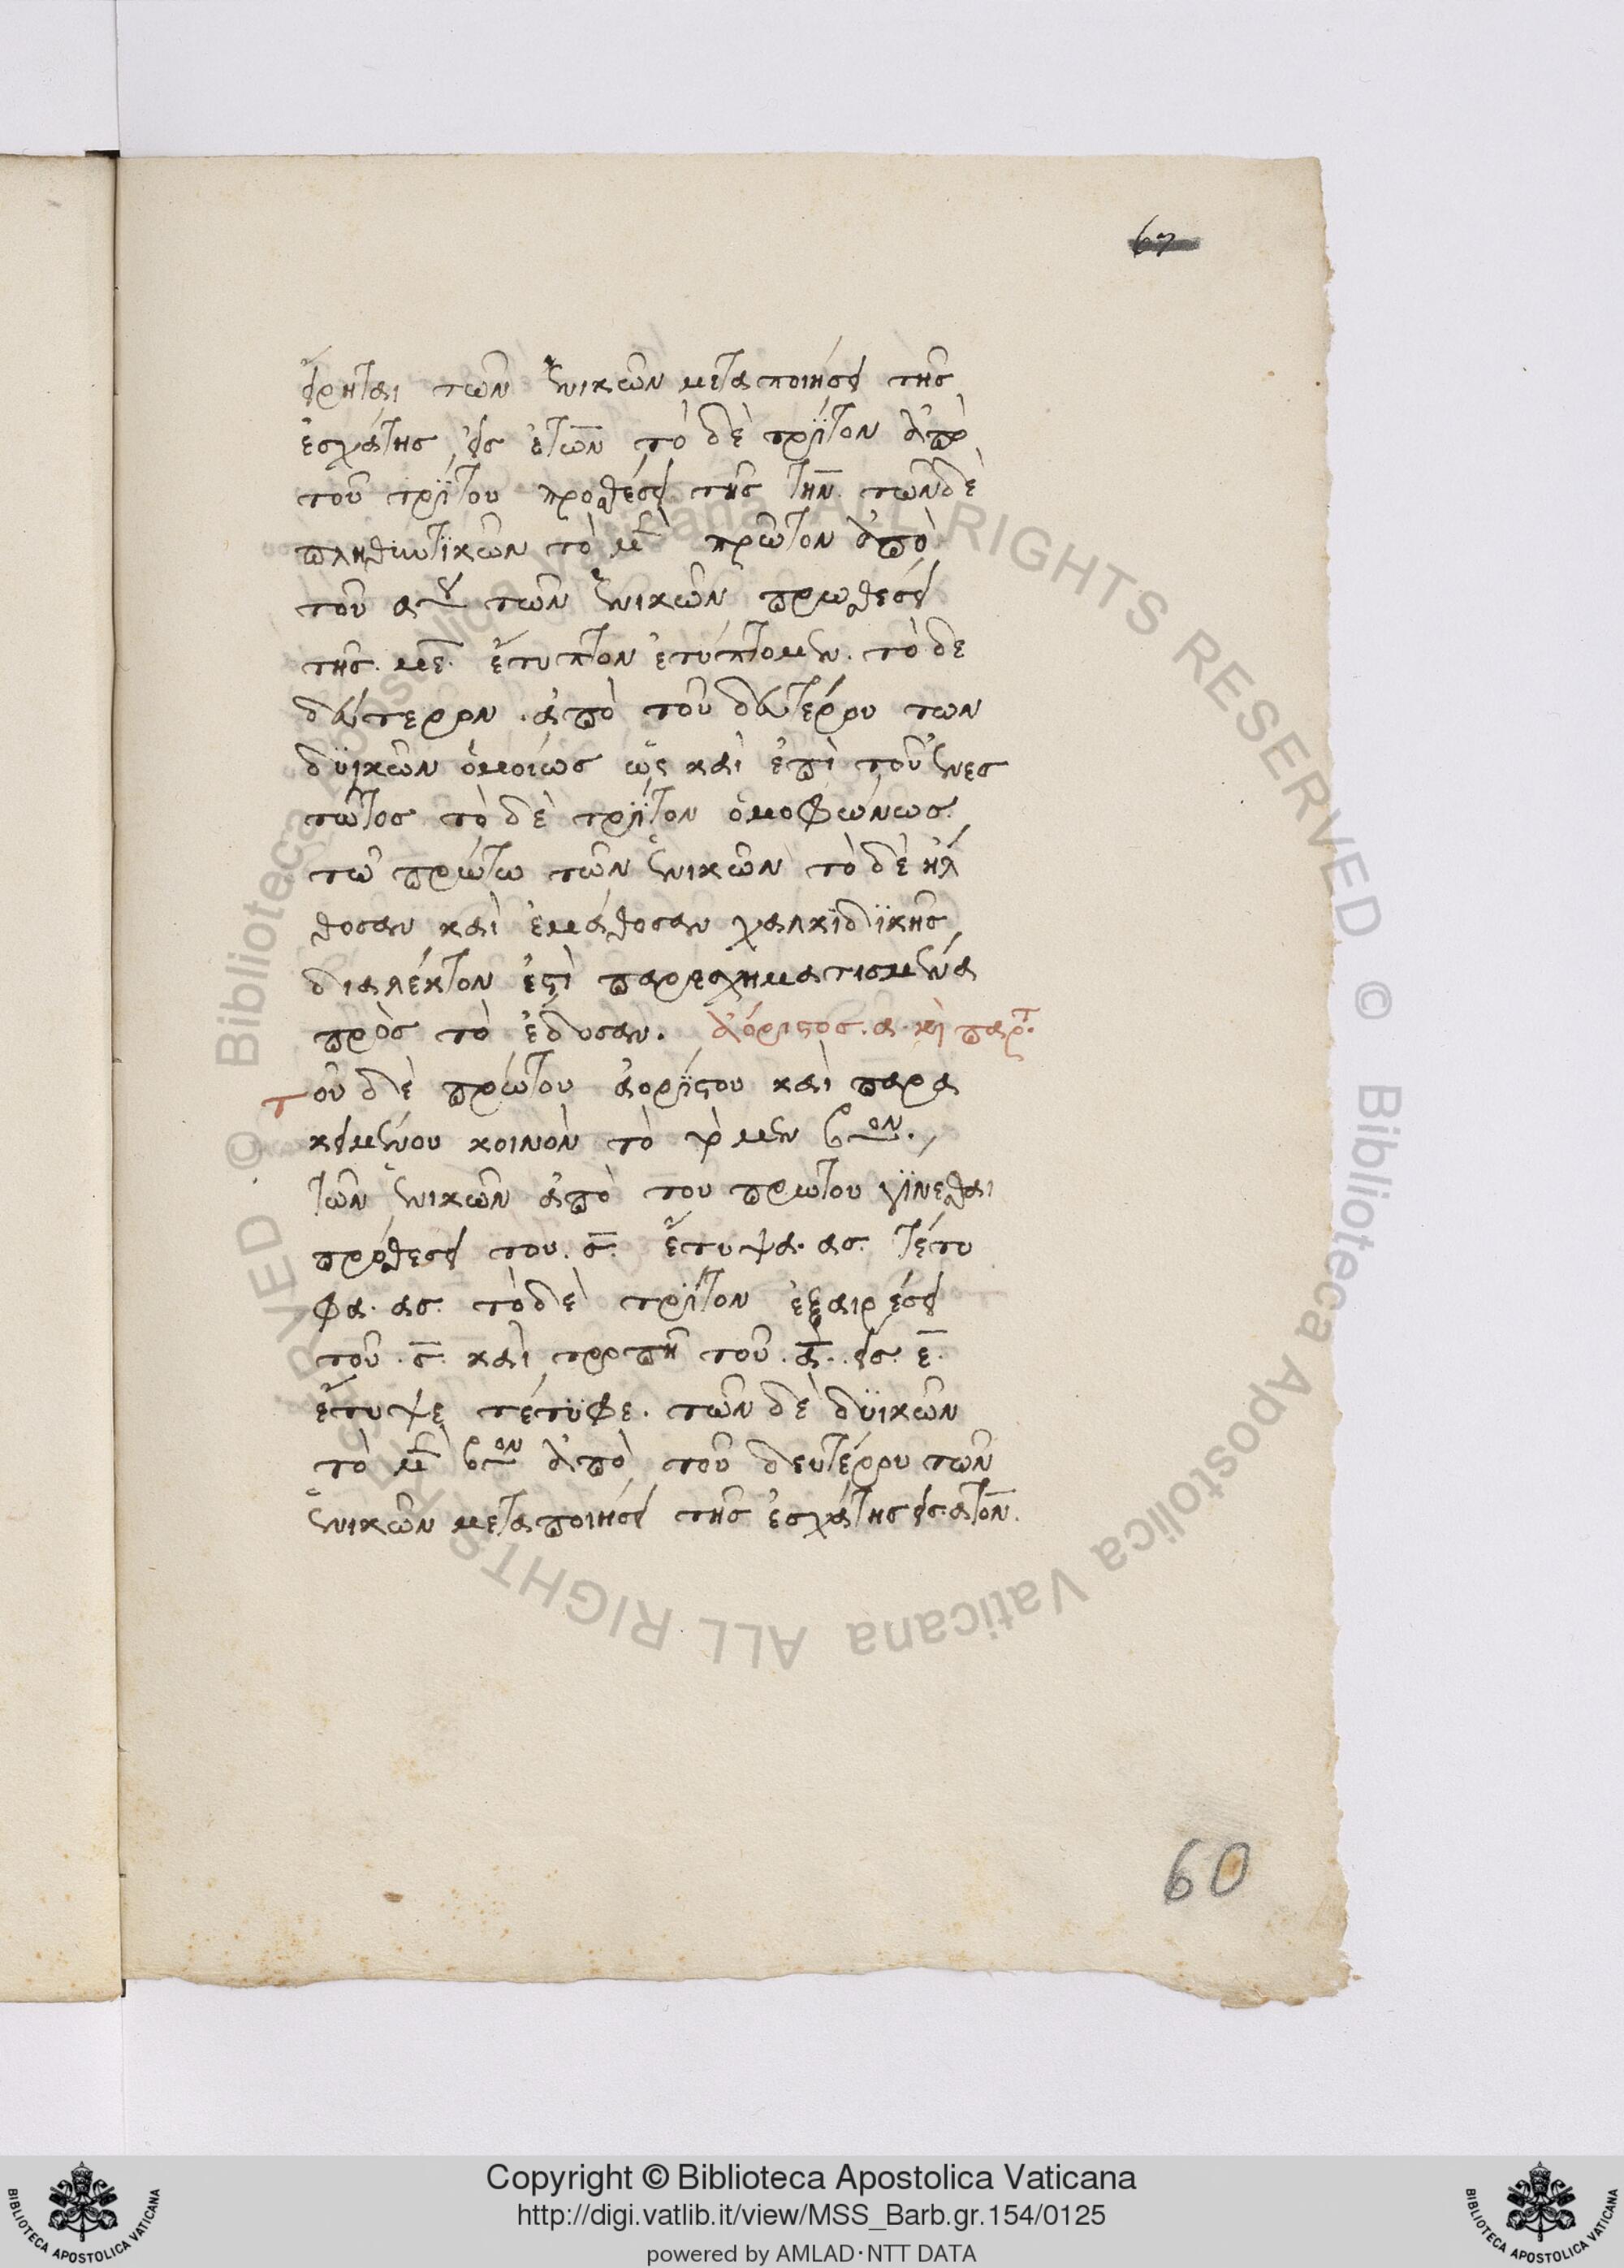 67
εἴρηται τῶν ἑνικῶν μεταποιήσει τῆς
ἐσχάτης εἰς ετων τὸ δὲ τρίτον ἀπὸ
τοῦ τρίτου προσθέσει τῆς την. τῶν δὲ
πληθυντικῶν τὸ μὲν πρῶτον ἀπὸ
τοῦ αου τῶν ἑνικῶν πρωσθέσει
τῆς. με. ἔτυπτον ἐτύπτομεν. τὸ δε
δεύτερον. ἀπὸ τοῦ δευτέρου των
δϋικῶν ὁμοίως ὡς καὶ ἐπὶ τοῦ ἐνεσ
τῶτος τὸ δὲ τρίτον ὁμοφώνως
τῶ πρώτω τῶν ἑνικῶν τὸ δὲ ἤλ
θοσαν καὶ ἐμάθοσαν χαλκϊδϊκῆς
διαλέκτον ἐστὶ παρεσχηματισμένα
πρὸς τὸ ἔδυσαν. ἀόριστος. α. καὶ παρτ.
Τοῦ δὲ πρώτου ἀορίστου καὶ παρα
κειμένου κοινὸν τὸ μεν βον.
τῶν ἑνικῶν ἀπὸ του πρωτου γίνεσθαι
πρόσθεσει του. ς. ἔτυψα. ας. τέτυ
φα. ας. τὸ δὲ τρίτον ἐξαιρέσει
τοῦ. ς. καὶ τροπῆ τοῦ. α. εἰς. ε.
ἔτυψε τέτυφε. τῶν δὲ δϋικῶν
τὸ μὲν βον ἀπὸ τοῦ δευτέρου τῶν
ἑνικῶν μεταποιήσει τῆς ἐσχάτης εἰς. ατον.
60
© Biblioteca Apostolica Vaticana ALL RIGHTS RESERVED © Biblioteca Apostolica Vaticana ALL RIGHTS RESERVED
Copyright © Biblioteca Apostolica Vaticana
http://digi.vatlib.it/view/MSS_Barb.gr.154/0125
powered by AMLAD·NTT DATA
BIBLIOTECA APOSTOLICA VATICANA
BIBLIOTECA APOSTOLICA VATICANA